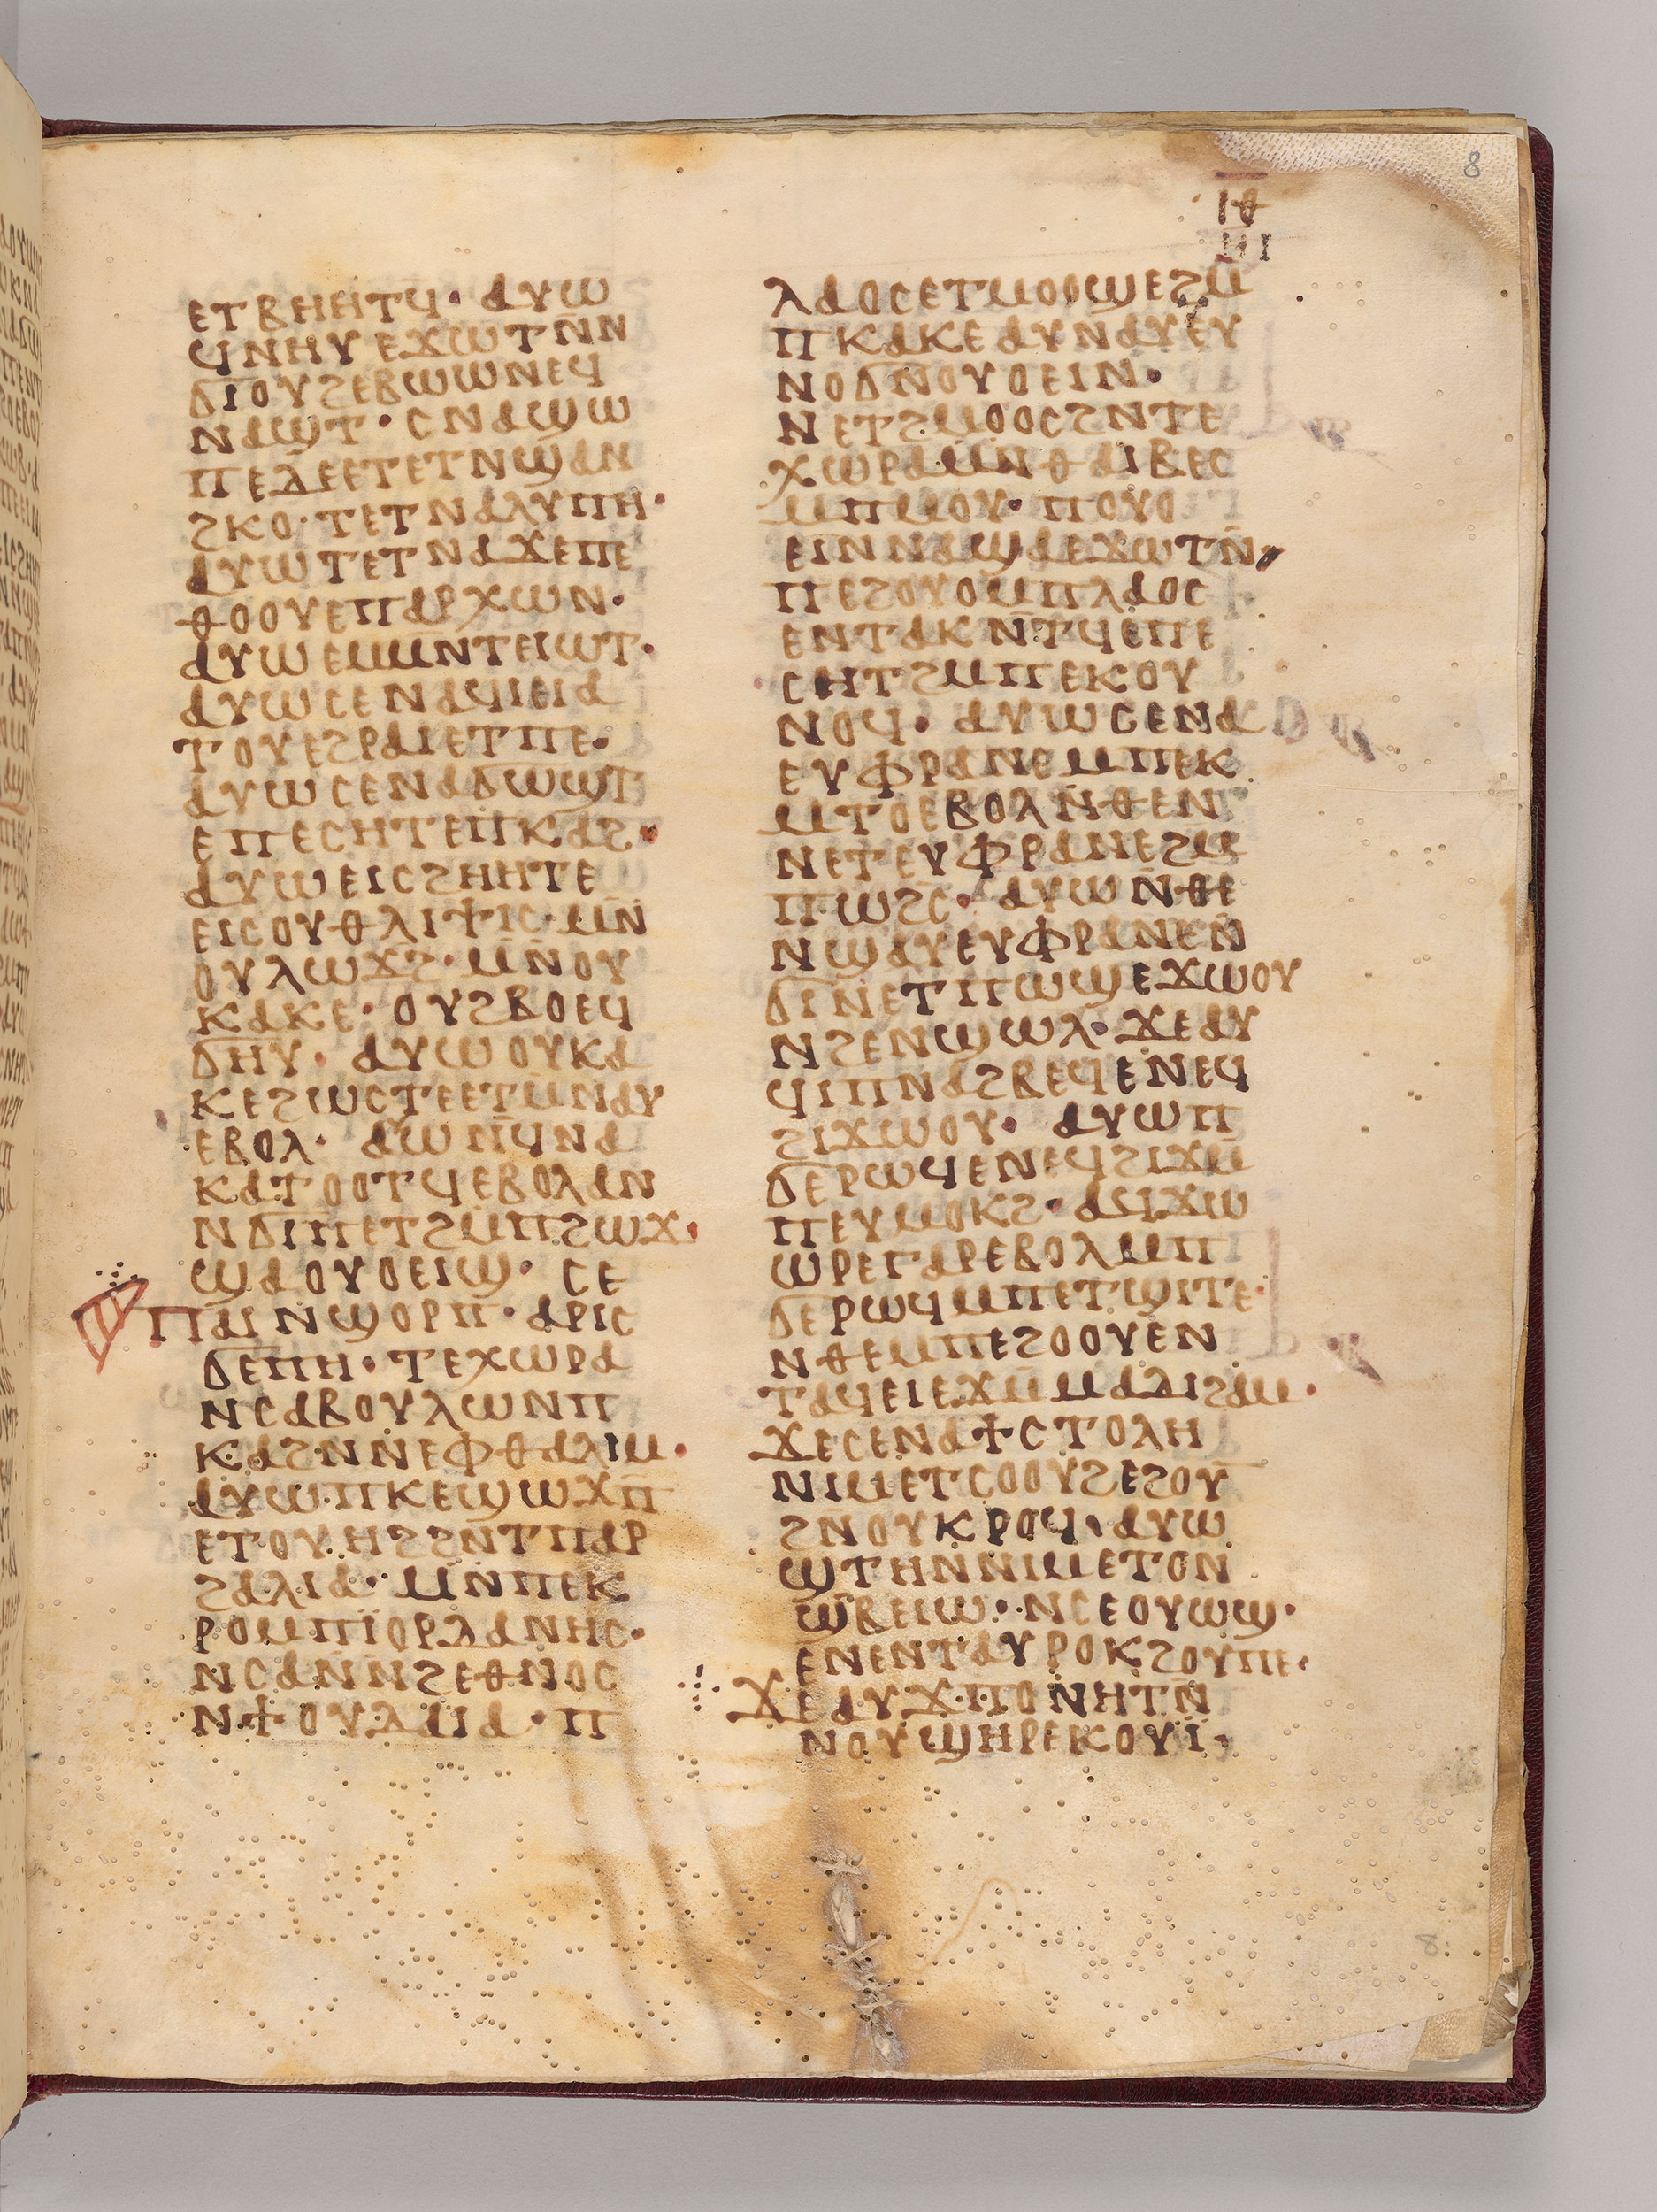 8
ⲓⲑ
ⲉⲧⲃⲏⲏⲧϥ· ⲁⲩⲱ
ϥⲛⲏⲩ ⲉϫⲱⲧⲛ̄ⲛ
ϭⲓⲟⲩϩⲉⲃⲱⲱⲛⲉϥ
ⲛⲁϣⲧ· ⲥⲛⲁϣⲱ
ⲡⲉⲇⲉⲉⲧⲉⲧⲛϣⲁⲛ
ϩⲕⲟ· ⲧⲉⲧⲛⲁⲗⲩⲡⲏ·
ⲁⲩⲱⲧⲉⲧⲛⲁϫⲉⲡⲉ
ⲑⲟⲟⲩⲉⲡⲁⲣⲭⲱⲛ·
ⲁⲩⲱⲉⲙⲙⲛⲧⲉⲓⲱⲧ·
ⲁⲩⲱⲥⲉⲛⲁϥⲓⲉⲓⲁ
ⲧⲟⲩⲉϩⲣⲁⲓⲉⲧⲡⲉ·
ⲁⲩⲱⲥⲉⲛⲁϭⲱϣⲧ
ⲉⲡⲉⲥⲏⲧⲉⲡⲕⲁϩ·
ⲁⲩⲱⲉⲓⲥϩⲏⲏⲧⲉ
ⲉⲓⲥⲟⲩⲑⲗⲓⲯⲓⲥ·ⲙⲛ̄
ⲟⲩⲗⲱϫϩ̄·ⲙⲛ̄ⲟⲩ
ⲕⲁⲕⲉ· ⲟⲩϩⲃⲟⲉϥ
ϭⲏⲩ· ⲁⲩⲱⲟⲩⲕⲁ
ⲕⲉϩⲱⲥⲧⲉⲉⲧⲙ̄ⲛⲁⲩ
ⲉⲃⲟⲗ· ⲁⲩⲱⲛ̄ϥⲛⲁ
ⲕⲁⲧⲟⲟⲧϥⲉⲃⲟⲗⲁⲛ
ⲛϭⲓⲡⲉⲧϩⲙ̄ⲡϩⲱϫ·
ϣⲁⲟⲩⲟⲉⲓϣ· ⲥⲉ
ⲡⲁⲓⲛϣⲟⲣⲡ̄· ⲁⲣⲓⲥ
ϭⲉⲡⲏ· ⲧⲉⲭⲱⲣⲁ
ⲛⲥⲁⲃⲟⲩⲗⲱⲛⲡ
ⲕⲁϩⲛⲛⲉⲫⲑⲁⲗⲓⲙ·
ⲁⲩⲱⲡⲕⲉϣⲱϫⲡ̄
ⲉⲧⲟⲩⲏϩϩⲛⲧⲡⲁⲣ
ϩⲁⲗⲓⲁ· ⲙⲛⲡⲉⲕ
ⲣⲟⲙⲡⲓⲟⲣⲇⲁⲛⲏⲥ·
ⲛⲥⲁⲛⲛϩⲉⲑⲛⲟⲥ
ⲛϯⲟⲩⲇⲁⲓⲁ· ⲡ
ⲗⲁⲟⲥⲉⲧⲙⲟⲟϣⲉϩⲙ
ⲡⲕⲁⲕⲉⲁⲩⲛⲁⲩⲉⲩ
ⲛⲟϭⲛ̄ⲟⲩⲟⲉⲓⲛ·
ⲛⲉⲧϩⲙⲟⲟⲥϩⲛⲧⲉ
ⲭⲱⲣⲁⲙⲛⲑⲁⲓⲃⲉⲥ
ⲙⲡⲙⲟⲩ· ⲡⲟⲩⲟ
ⲉⲓⲛⲛⲁϣⲁⲉϫⲱⲧⲛ̄·
ⲡⲉϩⲟⲩⲟⲙⲡⲗⲁⲟⲥ
ⲉⲛⲧⲁⲕⲛ̄ⲧϥⲉⲡⲉ
ⲥⲏⲧϩⲙⲡⲉⲕⲟⲩ
ⲛⲟϥ· ⲁⲩⲱⲥⲉⲛⲁ
ⲉⲩⲫⲣⲁⲛⲉⲙⲡⲉⲕ
ⲙⲧⲟⲉⲃⲟⲗⲛ̄ⲑⲉⲛ
ⲛⲉⲧⲉⲩⲫⲣⲁⲛⲉϩⲙ
ⲡⲱϩⲥ· ⲁⲩⲱⲛ̄ⲑⲉ
ⲛϣⲁⲩⲉⲩⲫⲣⲁⲛⲉⲛ̄
ϭⲓⲛⲉⲧⲡⲱϣⲉϫⲱⲟⲩ
ⲛϩⲉⲛϣⲱⲗ· ϫⲉⲁⲩ
ϥⲓⲡⲛⲁϩⲃⲉϥⲉⲛⲉϥ
ϩⲓϫⲱⲟⲩ· ⲁⲩⲱⲡ
ϭⲉⲣⲱϥⲉⲛⲉϥϩⲓϫⲙ̄
ⲡⲉⲩⲙⲟⲕϩ· ⲁϥϫⲱ
ⲱⲣⲉⲅⲁⲣⲉⲃⲟⲗⲙⲡ
ϭⲉⲣⲱϥⲙⲡⲉⲧϣⲓⲧⲉ·
ⲛⲑⲉⲙⲡⲉϩⲟⲟⲩⲉⲛ
ⲧⲁϥⲉⲓⲉϫⲙ̄ⲙⲁⲇⲓϩⲁⲙ·
ϫⲉⲥⲉⲛⲁϯⲥⲧⲟⲗⲏ
ⲛⲓⲙⲉⲧⲥⲟⲟⲩϩⲉϩⲟⲩ
ϩⲛⲟⲩⲕⲣⲟϥ· ⲁⲩⲱ
ϣⲧⲏⲛⲛⲓⲙⲉⲧⲟⲛ
ϣⲃⲉⲓⲱ· ⲛⲥⲉⲟⲩⲱϣ·
ⲉⲛⲉⲛⲧⲁⲩⲣⲟⲕϩⲟⲩⲡⲉ·
ϫⲉⲁⲩϫⲡⲟⲛⲏⲧⲛ̄
ⲛⲟⲩϣⲏⲣⲉⲕⲟⲩⲓ̈·
8